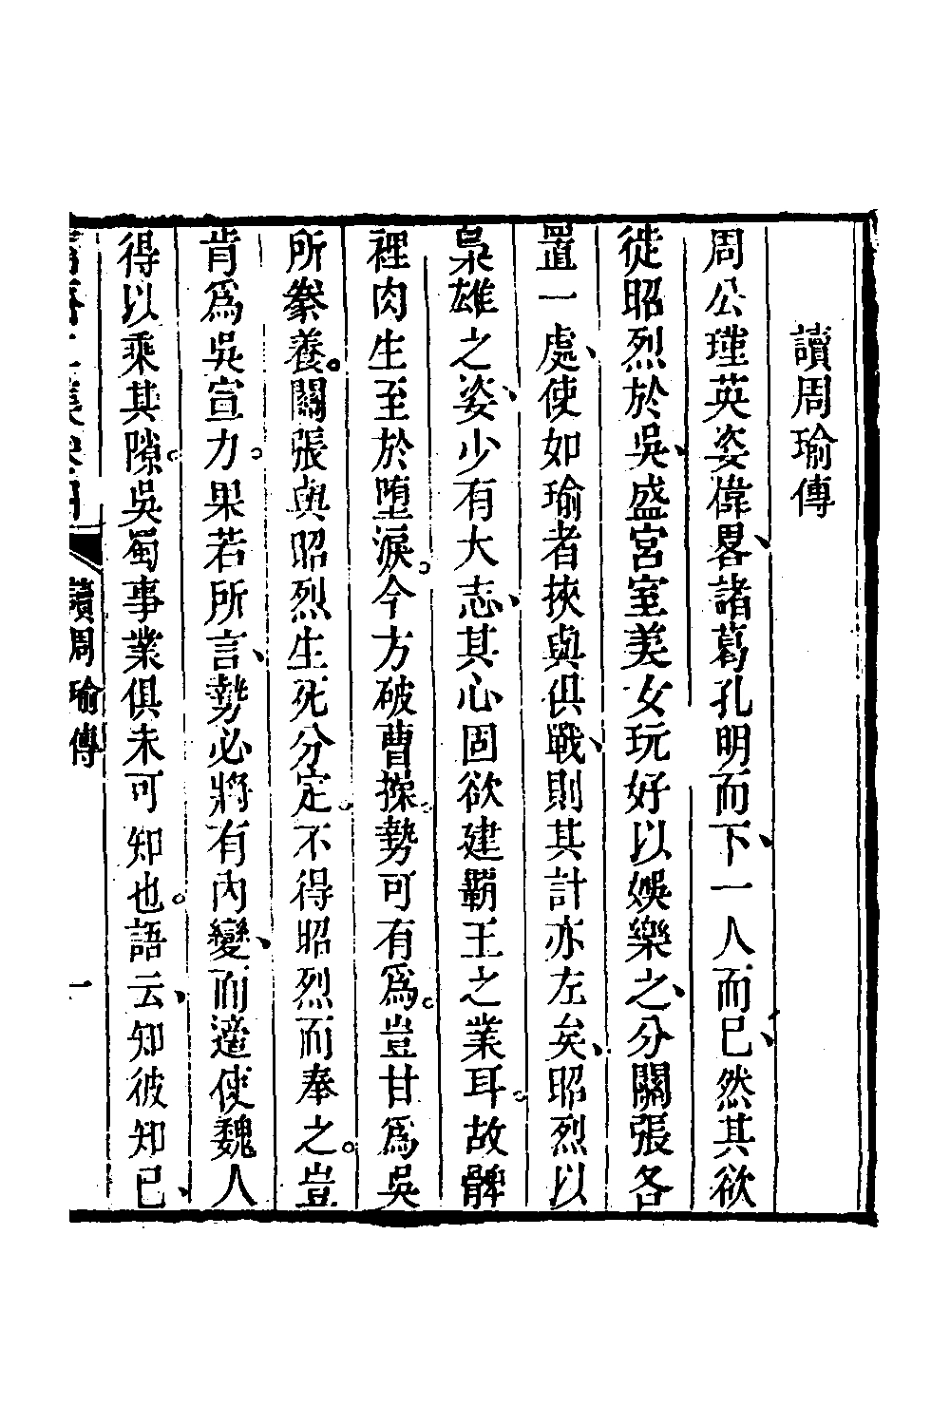 讀周瑜傳
周公瑾英姿偉畧、諸葛孔明而下、一人而已、然其欲
徙昭烈於吳、盛宮室美女玩好以娛樂之、分關張各
置一處、使如瑜者挾與俱戰、則其計亦左矣、昭烈以
梟雄之姿、少有大志、其心固欲建霸王之業耳。故髀
裡肉生至於墮淚。今方破曹操。勢可有爲。豈甘爲吳
所豢養。關張與昭烈生死分定。不得昭烈而奉之。豈
肯爲吳宣力。果若所言、勢必將有內變、而適使魏人
得以乘其隙。吳蜀事業俱未可知也。語云、知彼知已、
讀周瑜傳
一